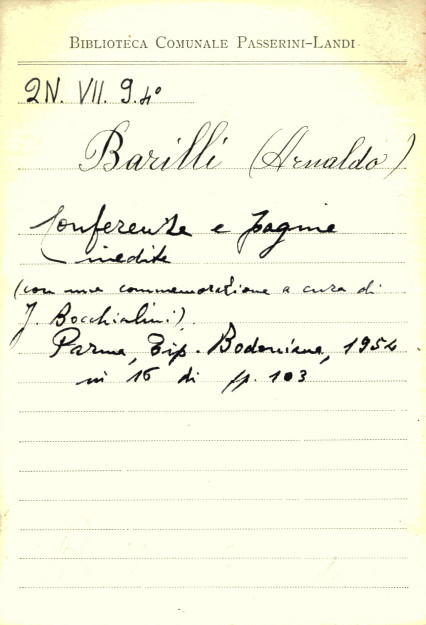 BIBLIOTECA COMUNALE PASSERINI-LANDI
2N. VII. 9. 4°
Barilli (Arnaldo)
Conferenze e pagine
inedite
(con una commemorazione a cura di
J. Bocchialini)
Parma, Tip. Bodoniana, 1954
in 16 di pp. 103